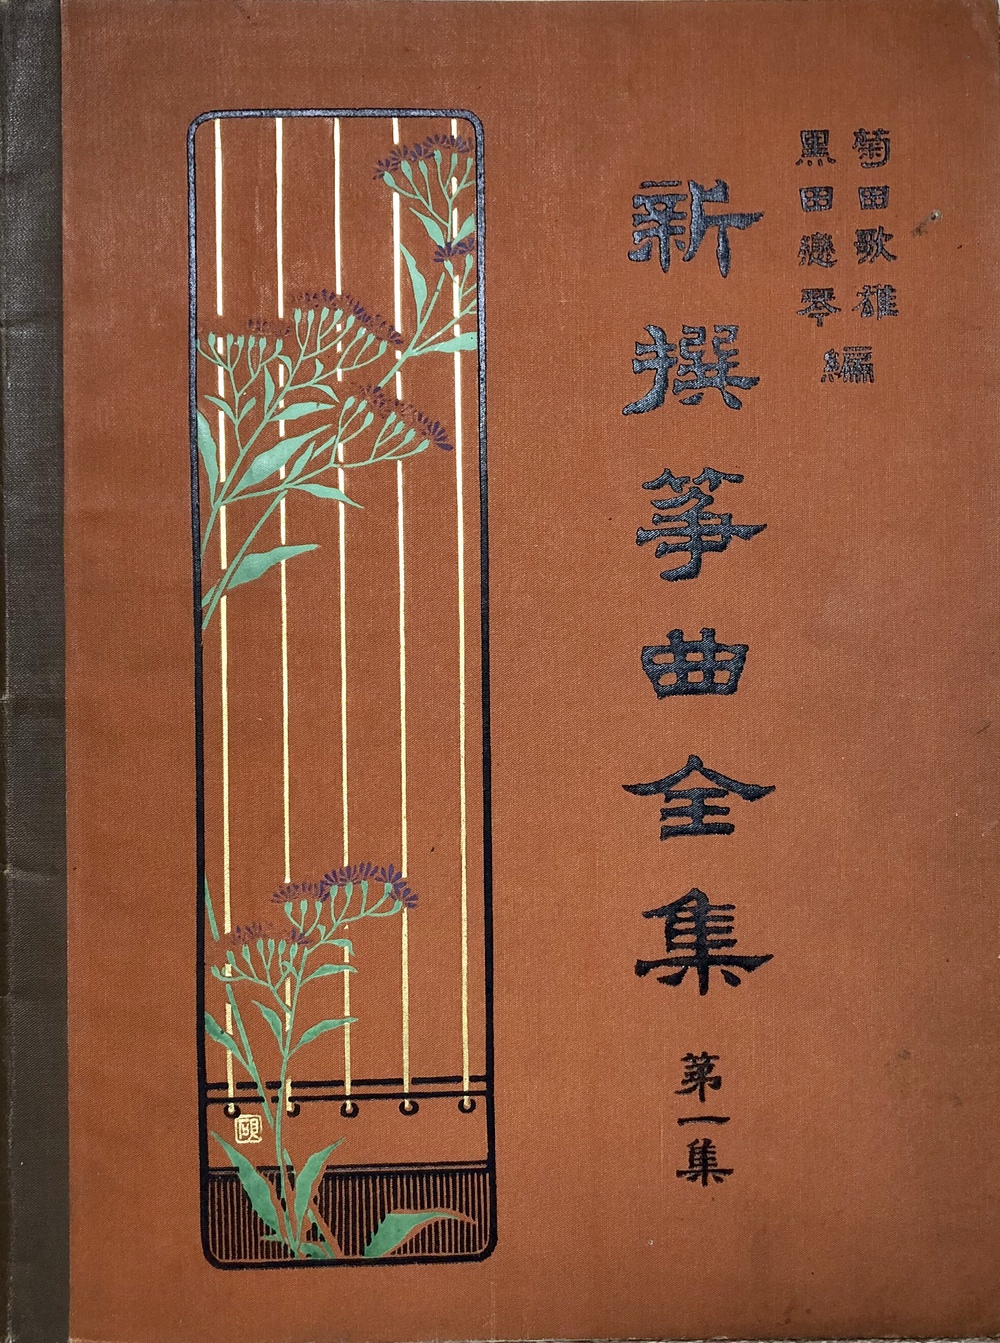 菊田歌雄
黒田戀琴
編
新撰箏曲全集
第一集